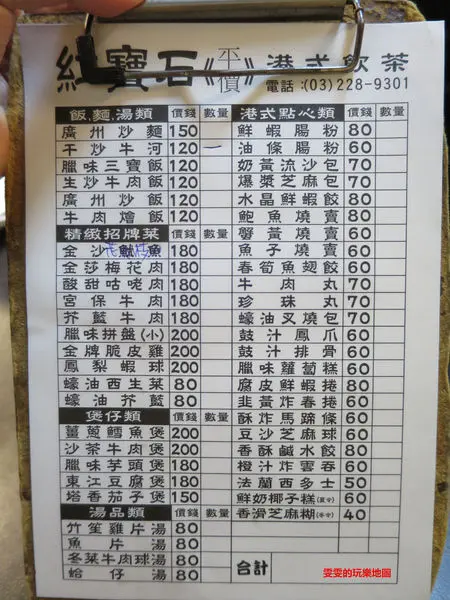 紅寶石《平價》港式飲茶
電話:(03)228-9301
飯.麵.湯類 價錢 數量
廣州炒麵 150
干炒牛河 120 一
臘味三寶飯 120
生炒牛肉飯 120
廣州炒飯 120
牛肉燴飯 120
精緻招牌菜 價錢 數量
金沙魷魚 180
金莎梅花肉 180
酸甜咕咾肉 180
宮保牛肉 180
芥藍牛肉 180
臘味拼盤(小) 200
金牌脆皮雞 200
鳳梨蝦球 200
蠔油西生菜 80
蠔油芥藍 80
煲仔類 價錢 數量
薑蔥鱈魚煲 200
沙茶牛肉煲 200
臘味芋頭煲 180
東江豆腐煲 180
塔香茄子煲 150
湯品類 價錢 數量
竹笙雞片湯 80
魚片湯 80
冬菜牛肉球湯 80
蛤仔湯 80
港式點心類 價錢 數量
鮮蝦腸粉 80
油條腸粉 60
奶黃流沙包 70
爆漿芝麻包 70
水晶鮮蝦餃 80
鮑魚燒賣 80
蟹黃燒賣 60
魚子燒賣 60
春筍魚翅餃 60
牛肉丸 70
珍珠丸 70
蠔油叉燒包 70
豉汁鳳爪 60
豉汁排骨 60
臘味蘿蔔糕 60
腐皮鮮蝦捲 80
韭黃炸春捲 60
酥炸馬蹄條 60
豆沙芝麻球 60
香酥鹹水餃 80
橙汁炸雲吞 60
法蘭西多士 50
鮮奶椰子糕 60
香滑芝麻糊 40
合計
雯雯的玩樂地圖